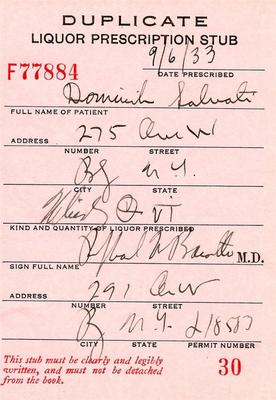 DUPLICATE
LIQUOR PRESCRIPTION STUB
9/6/33
F77884
DATE PRESCRIBED
Dominick Salvati
FULL NAME OF PATIENT
275 Ave W
ADDRESS
NUMBER STREET
N.Y.
CITY STATE
KIND AND QUANTITY OF LIQUOR PRESCRIBED
M.D.
SIGN FULL NAME
291 Ave W
ADDRESS
NUMBER STREET
N.Y.
CITY STATE PERMIT NUMBER
This stub must be clearly and legibly
written, and must not be detached
from the book.
30